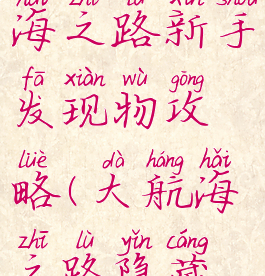 hǎi zhī lù xīn shǒu
海之路新手
fā xiàn wù gōng
发现物攻
lüè dà háng hǎi
略(大航海
zhī lù yǐn cáng
之路隐藏